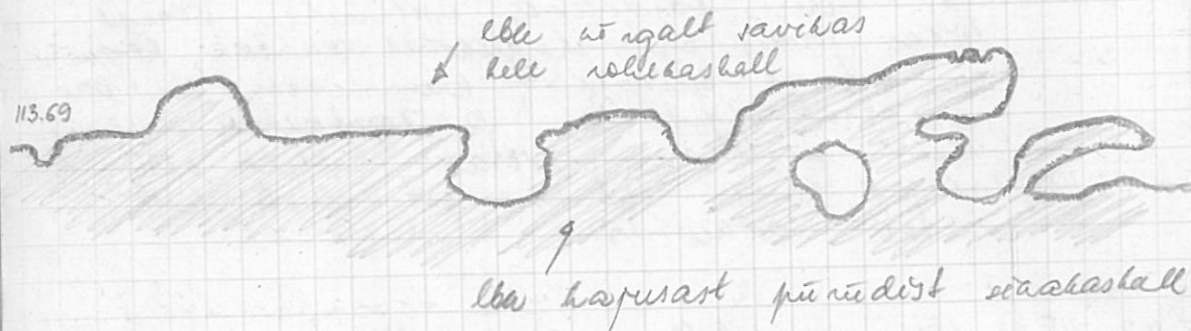 lbk nõrgalt savikas
hele rohekashall
113.69
lbk hajusast püriidist sinakashall